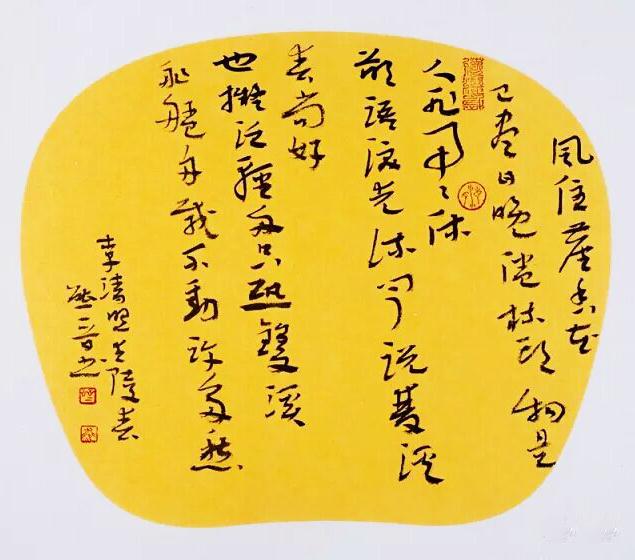 風住塵香花
已盡日晚倦梳頭物是
人非事〻休
欲語淚先流聞說雙溪
春尚好
也擬泛輕舟只恐雙溪
舴艋舟載不動許多愁
李清照武陵春